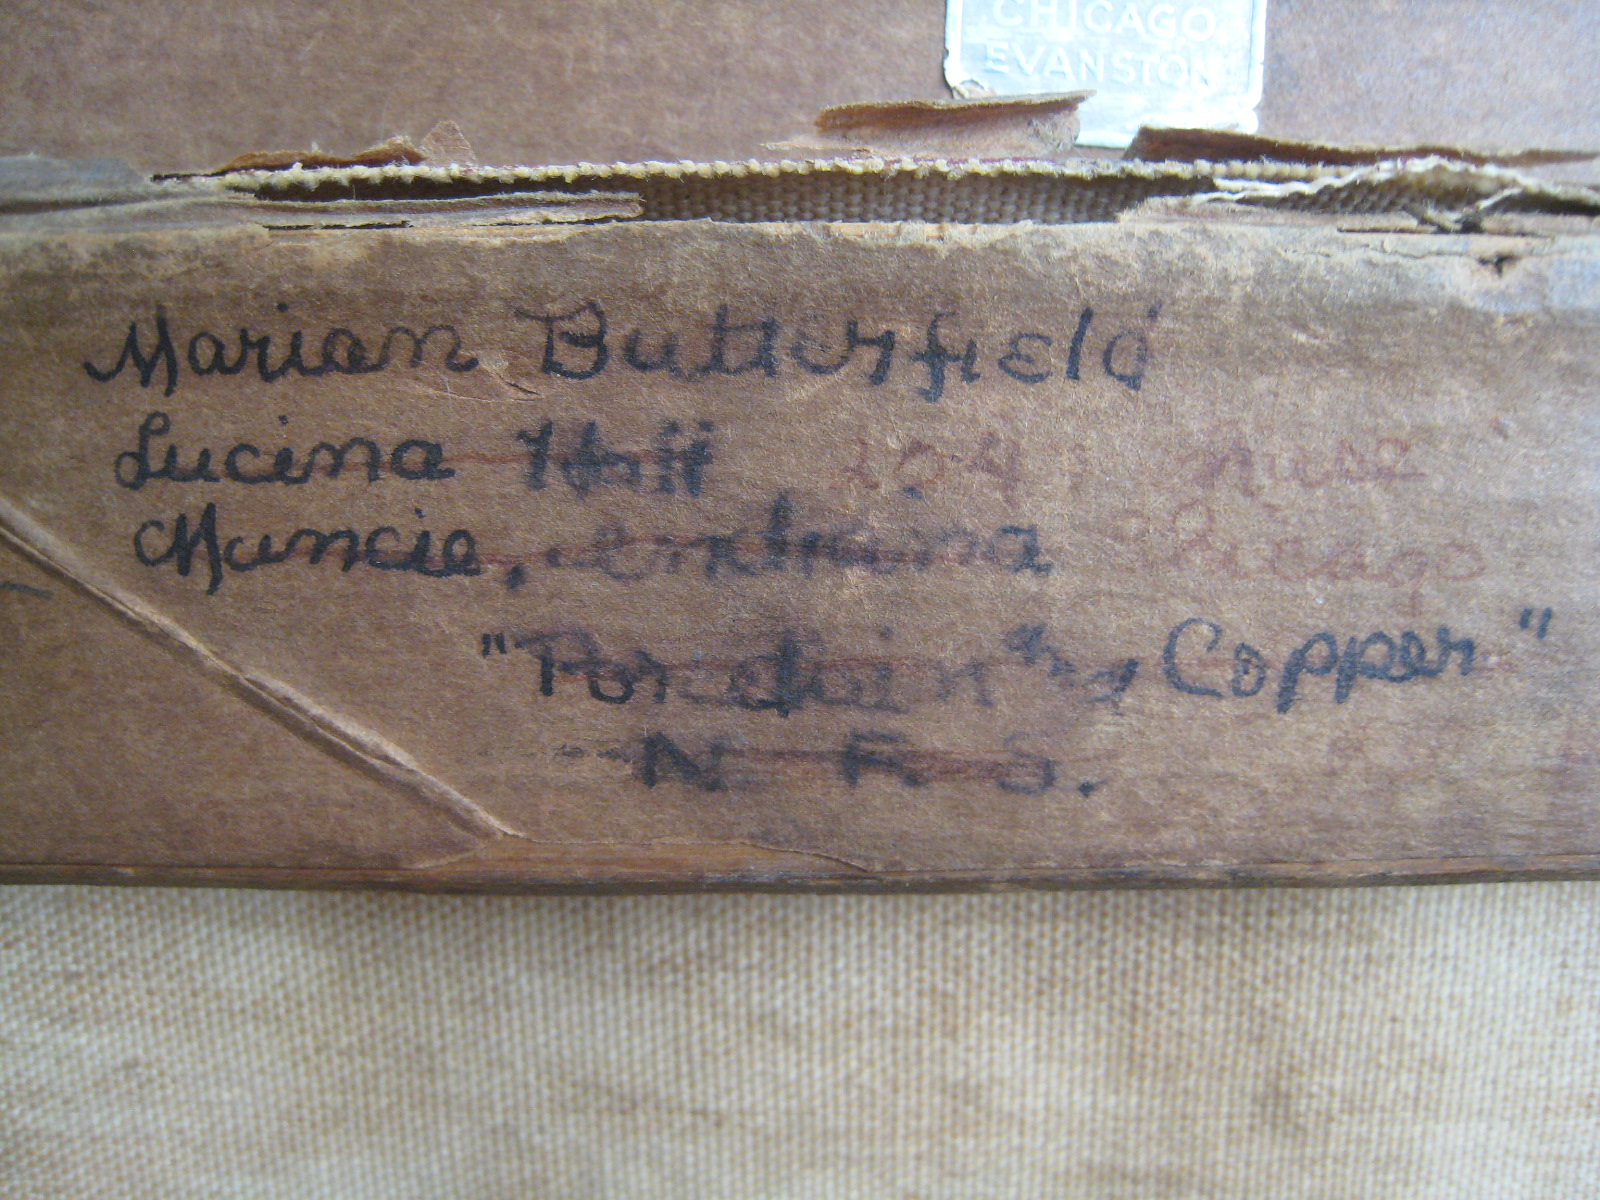 CHICAGO
EVANSTON
Marian Butterfield
Lucina Hall
Muncie, Indiana
Chicago
"Porcelain and Copper"
N. F. S.